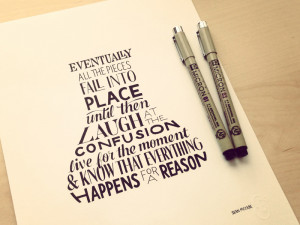 EVENTUALLY
ALL THE PIECES
FALL INTO
PLACE
until then
LAUGH AT THE
CONFUSION
live for the moment
& KNOW THAT EVERYTHING
HAPPENS FOR A REASON